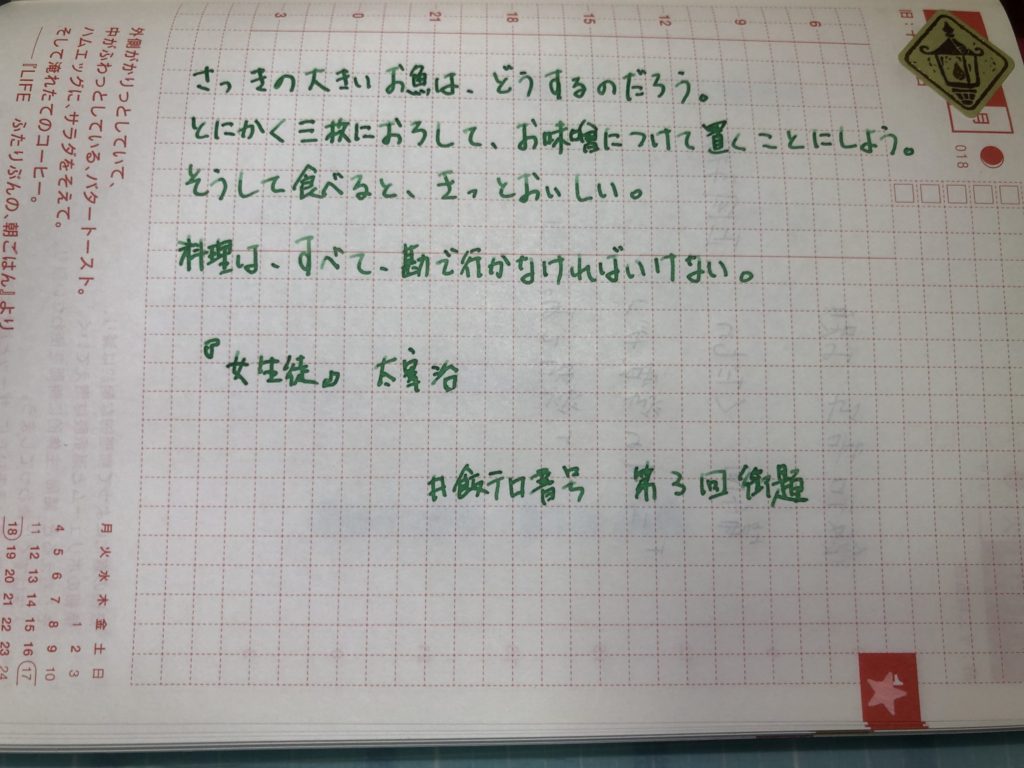 さっきの大きいお魚は、どうするのだろう。
とにかく三枚におろして、お味噌につけて置くことにしよう。
そうして食べると、きっとおいしい。
料理は、すべて、勘で行かなければいけない。
『女生徒』 太宰治
#飯テロ番号 第3回御題
3 0 21 18 15 12 9 6
月
018
外側がかりっとしていて、
中がふわっとしている、バタートースト。
ハムエッグに、サラダをそえて。
そして淹れたてのコーヒー。
──『LIFE ふたりぶんの、朝ごはん』より
月 火 水 木 金 土 日
1 2 3
4 5 6 7 8 9 10
11 12 13 14 15 16 17
18 19 20 21 22 23 24